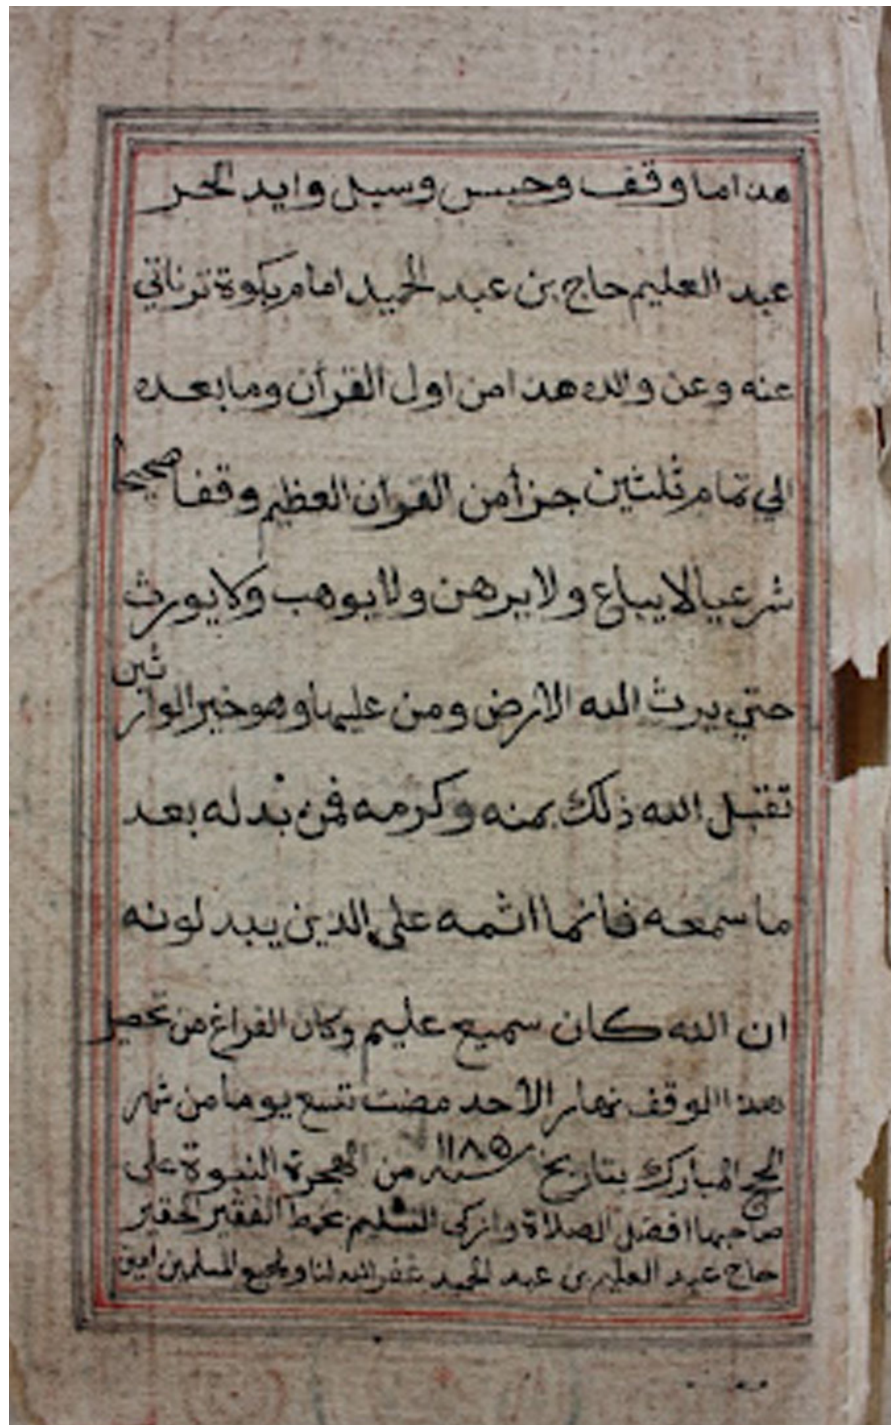 هذا ما وقف وحبس وسبل وايد الحر
عبد العليم حاج بن عبد الحميد امام بكوة ترناتي
عنه وعن والده هذا من اول القرأن وما بعده
الي تمام ثلثين جزأ من القرأن العظيم وقفا صحيحا
شرعيا لا يباع ولا يرهن ولا يوهب ولا يورث
حتي يرث الله الارض ومن عليها وهو خير الوارثين
تقبل الله ذلك بمنه وكرمه فمن بدله بعد
ما سمعه فانما اثمه علي الذين يبدلونه
ان الله كان سميع عليم وكان الفراغ من تحصل
هذا الوقف نهار الأحد مضت تسع يوما من شهر
الحج المبارك بتاريخ سنه ١١٨٥ من الهجرة النبوة على
صاحبها افضل الصلاة وازكى التسليم بخط الفقير الحقير
حاج عبد العليم بن عبد الحميد غفر الله لنا ولجميع المسلمين امين